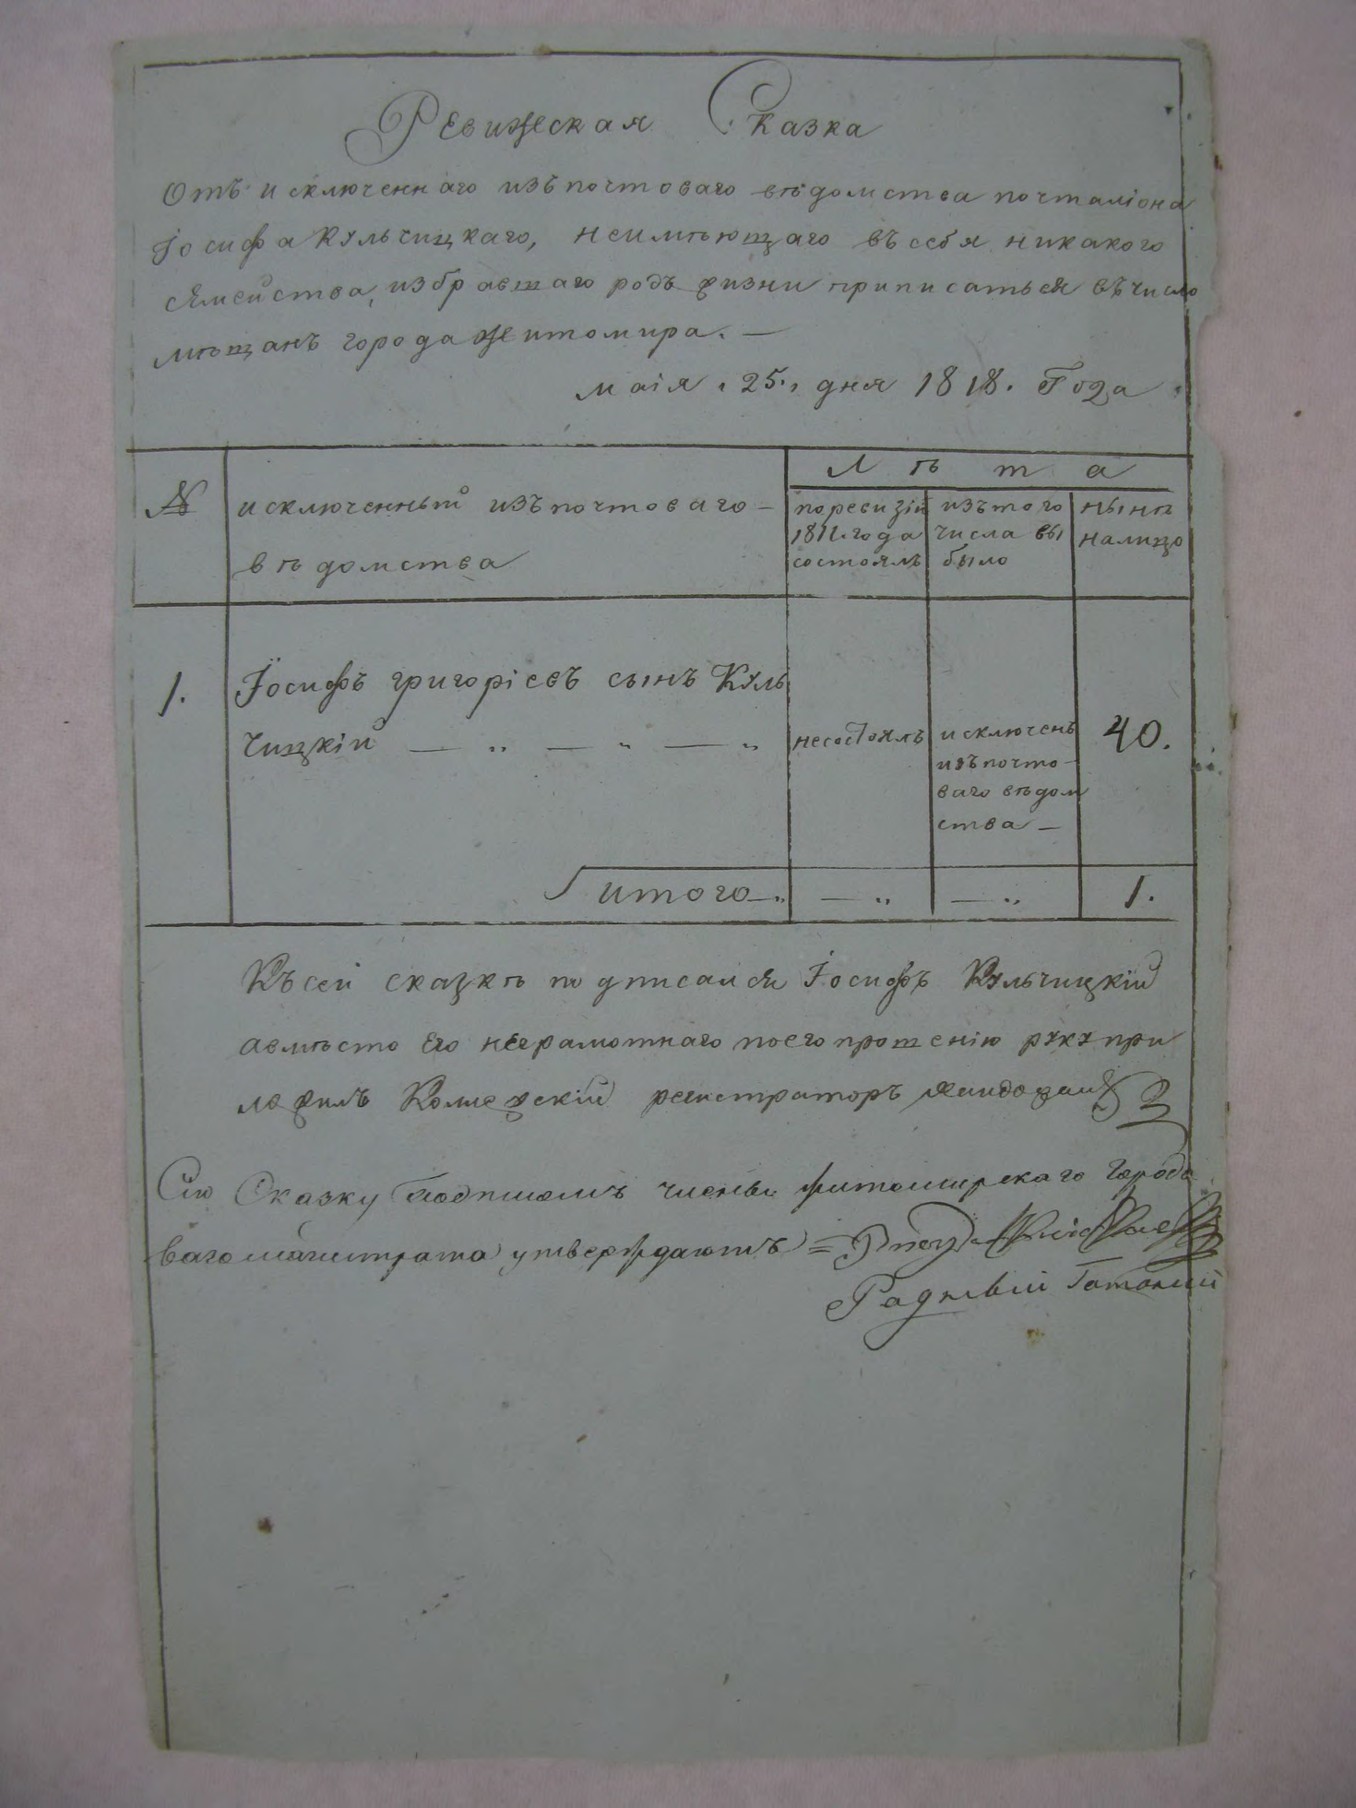 Ревижеская Сказка
Отъ исключеннаго изъ почтоваго вѣдомства почталіона
Іосифа Кульчицкаго, неимѣющаго въ себя никакого
сямейства, избравшаго родъ жизни приписаться въ число
мѣщанъ города Житомира. —
маія „25„ дня 1818. Года
№
исключенный изъ почтоваго —
вѣдомства
Лѣта
по ревизіи
1811. года
состоялъ
изъ того
числа вы
было
нынѣ
налицо
1.
Іосифъ григоріевъ сынъ Куль
чицкій — „ — „ — „
несостоялъ
исключенъ
изъ почто-
ваго вѣдом
ства —
40.
итого — „
— „
— „
1.
Къ сей сказкѣ подписался Іосифъ Кульчицкій
авмѣсто его неграмотнаго поего прошенію руку при
ложилъ Колежскій регистраторъ
Сію Сказку Подписомъ члены житомирскаго Городо
ваго магистрата утверждаютъ =
Ратманъ